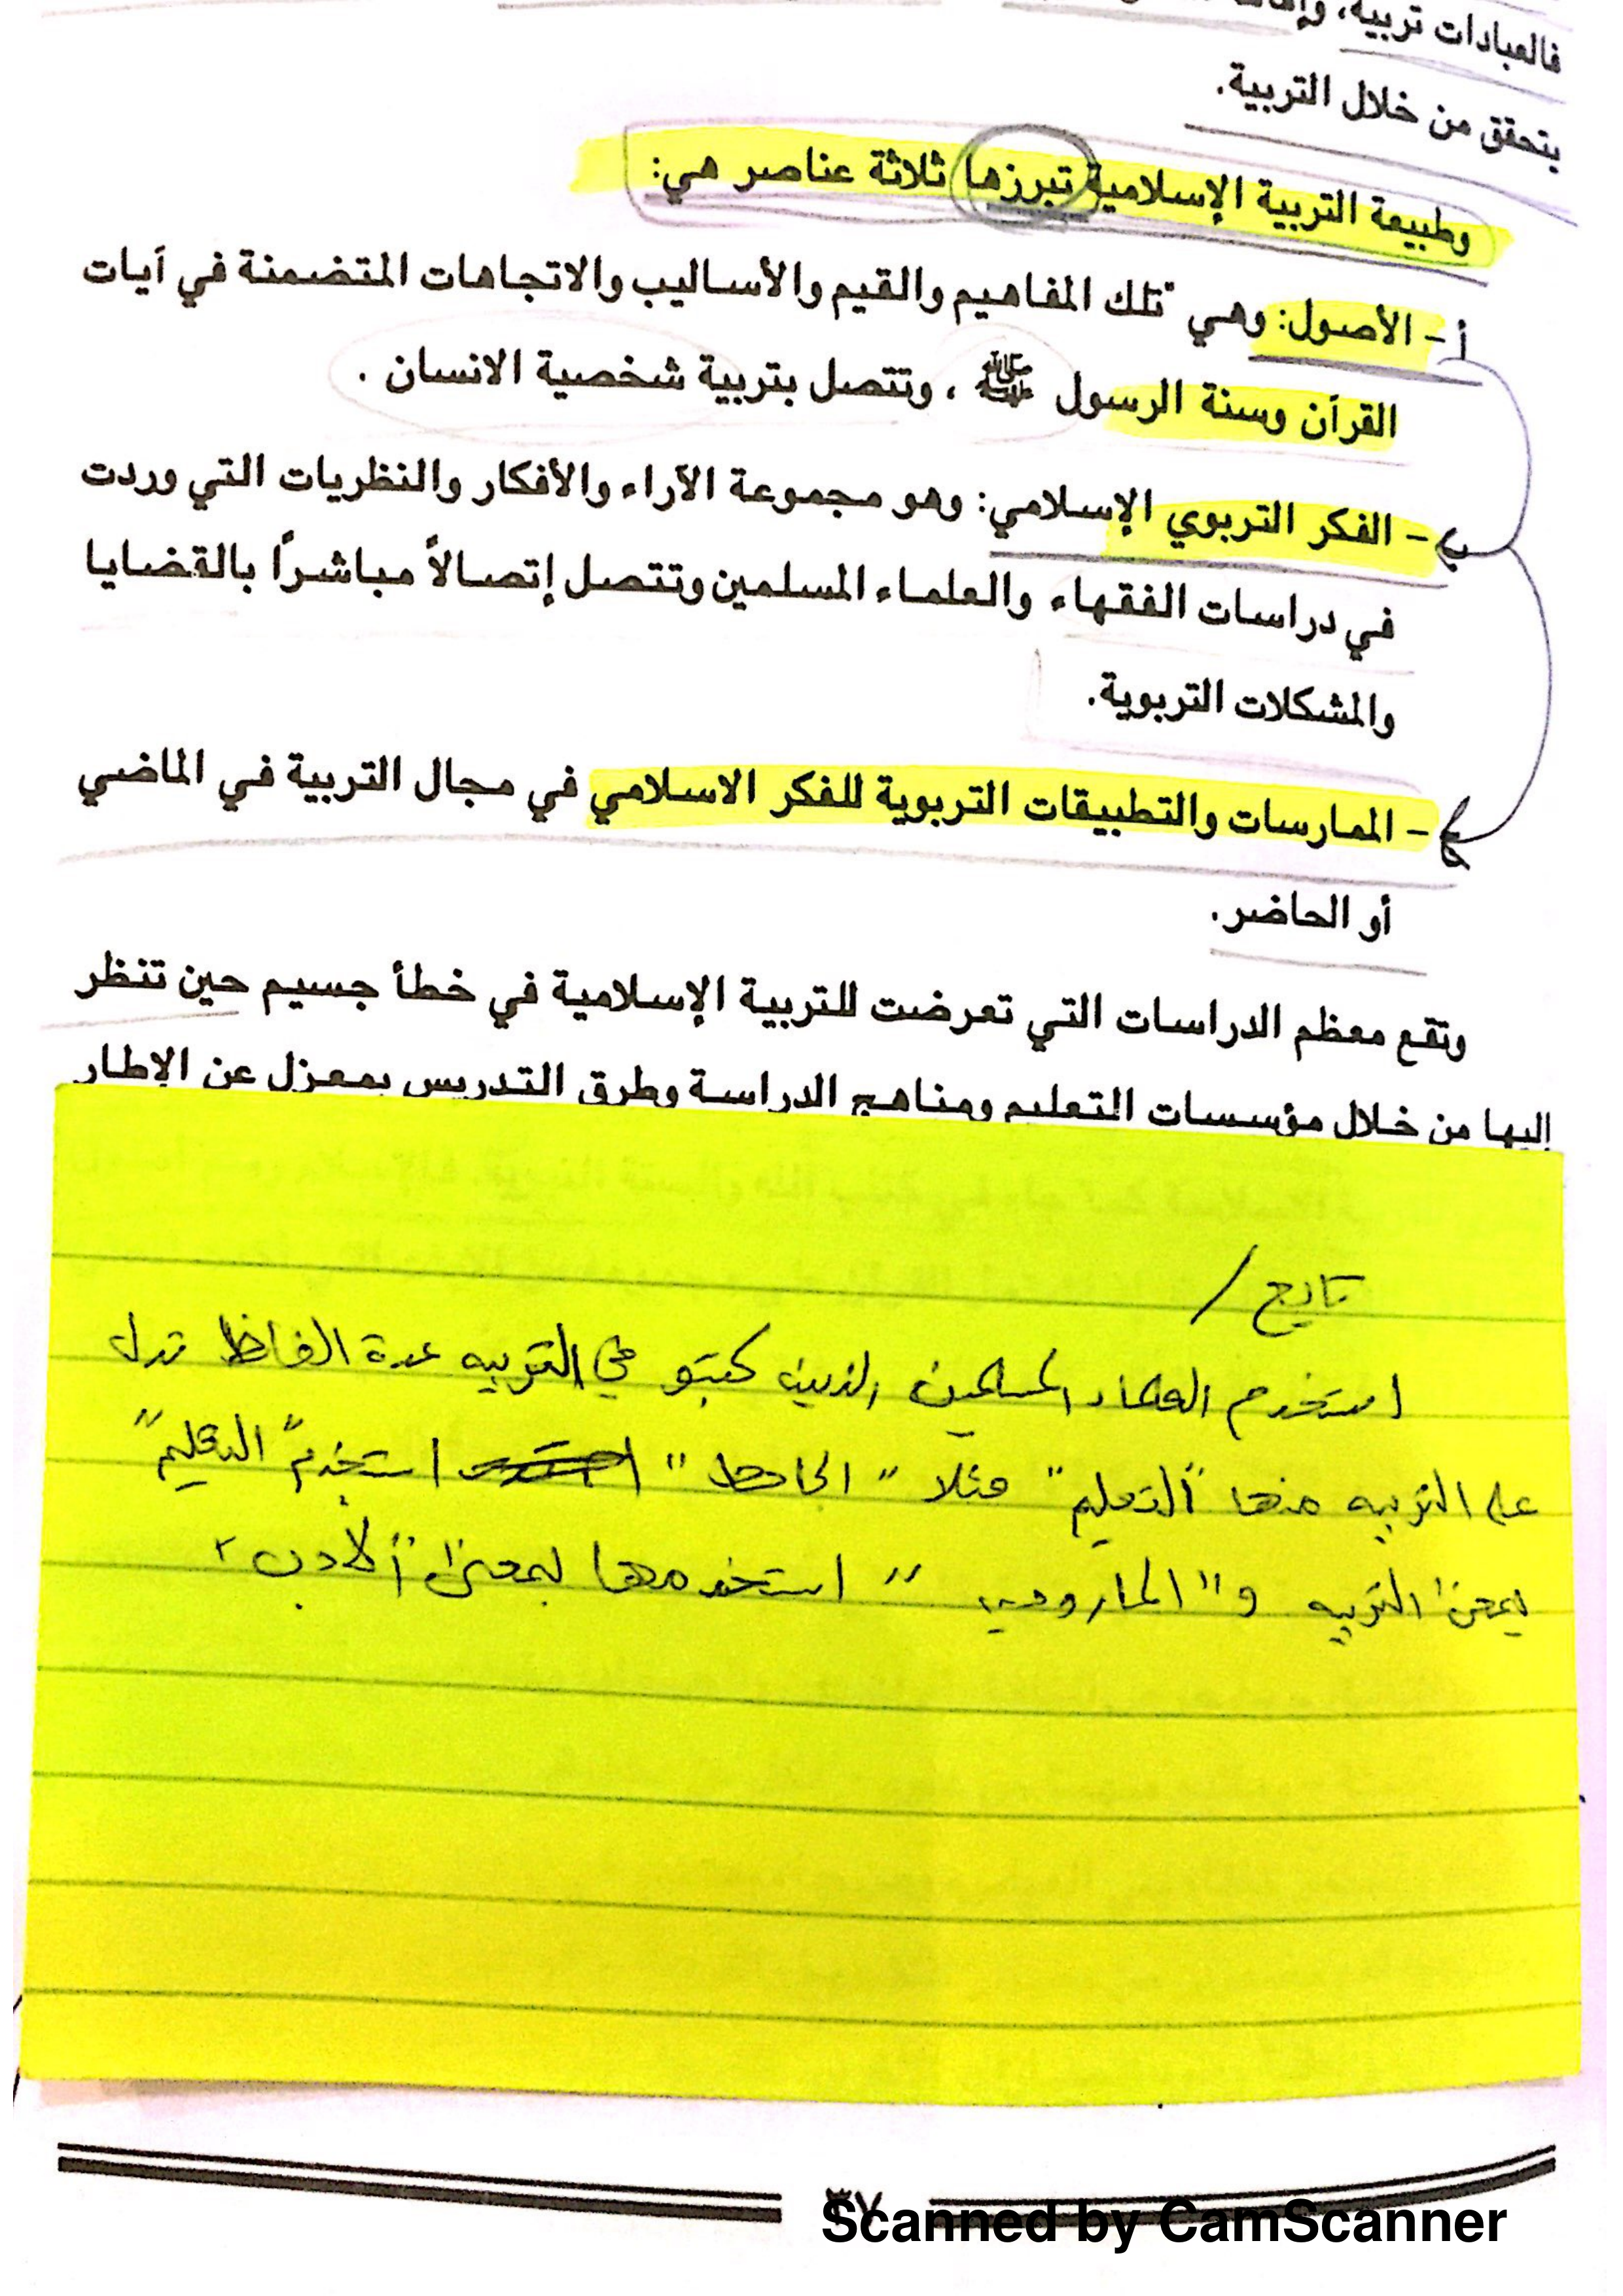 فالعبادات تربية،
يتحقق من خلال التربية.
وطبيعة التربية الإسلامية تبرزها ثلاثة عناصر هي:
أ - الأصول: وهي "تلك المفاهيم والقيم والأساليب والاتجاهات المتضمنة في آيات
القرآن وسنة الرسول ﷺ ، وتتصل بتربية شخصية الانسان .
ب - الفكر التربوي الإسلامي: وهو مجموعة الآراء والأفكار والنظريات التي وردت
في دراسات الفقهاء والعلماء المسلمين وتتصل إتصالاً مباشراً بالقضايا
والمشكلات التربوية.
ج - الممارسات والتطبيقات التربوية للفكر الاسلامي في مجال التربية في الماضي
أو الحاضر.
وتقع معظم الدراسات التي تعرضت للتربية الإسلامية في خطأ جسيم حين تنظر
إليها من خلال مؤسسات التعليم ومناهج الدراسة وطرق التدريس بمعزل عن الإطار
تابع /
استخدم العلماء المسلمين الذين كتبو في التربيه عدة الفاظ تدل
على التربيه منها "التعليم" مثلا " الجاحظ " استخدم "التعليم"
بمعنى التربيه و" المارودي " استخدمها بمعنى "الأدب"
٣٧
Scanned by CamScanner